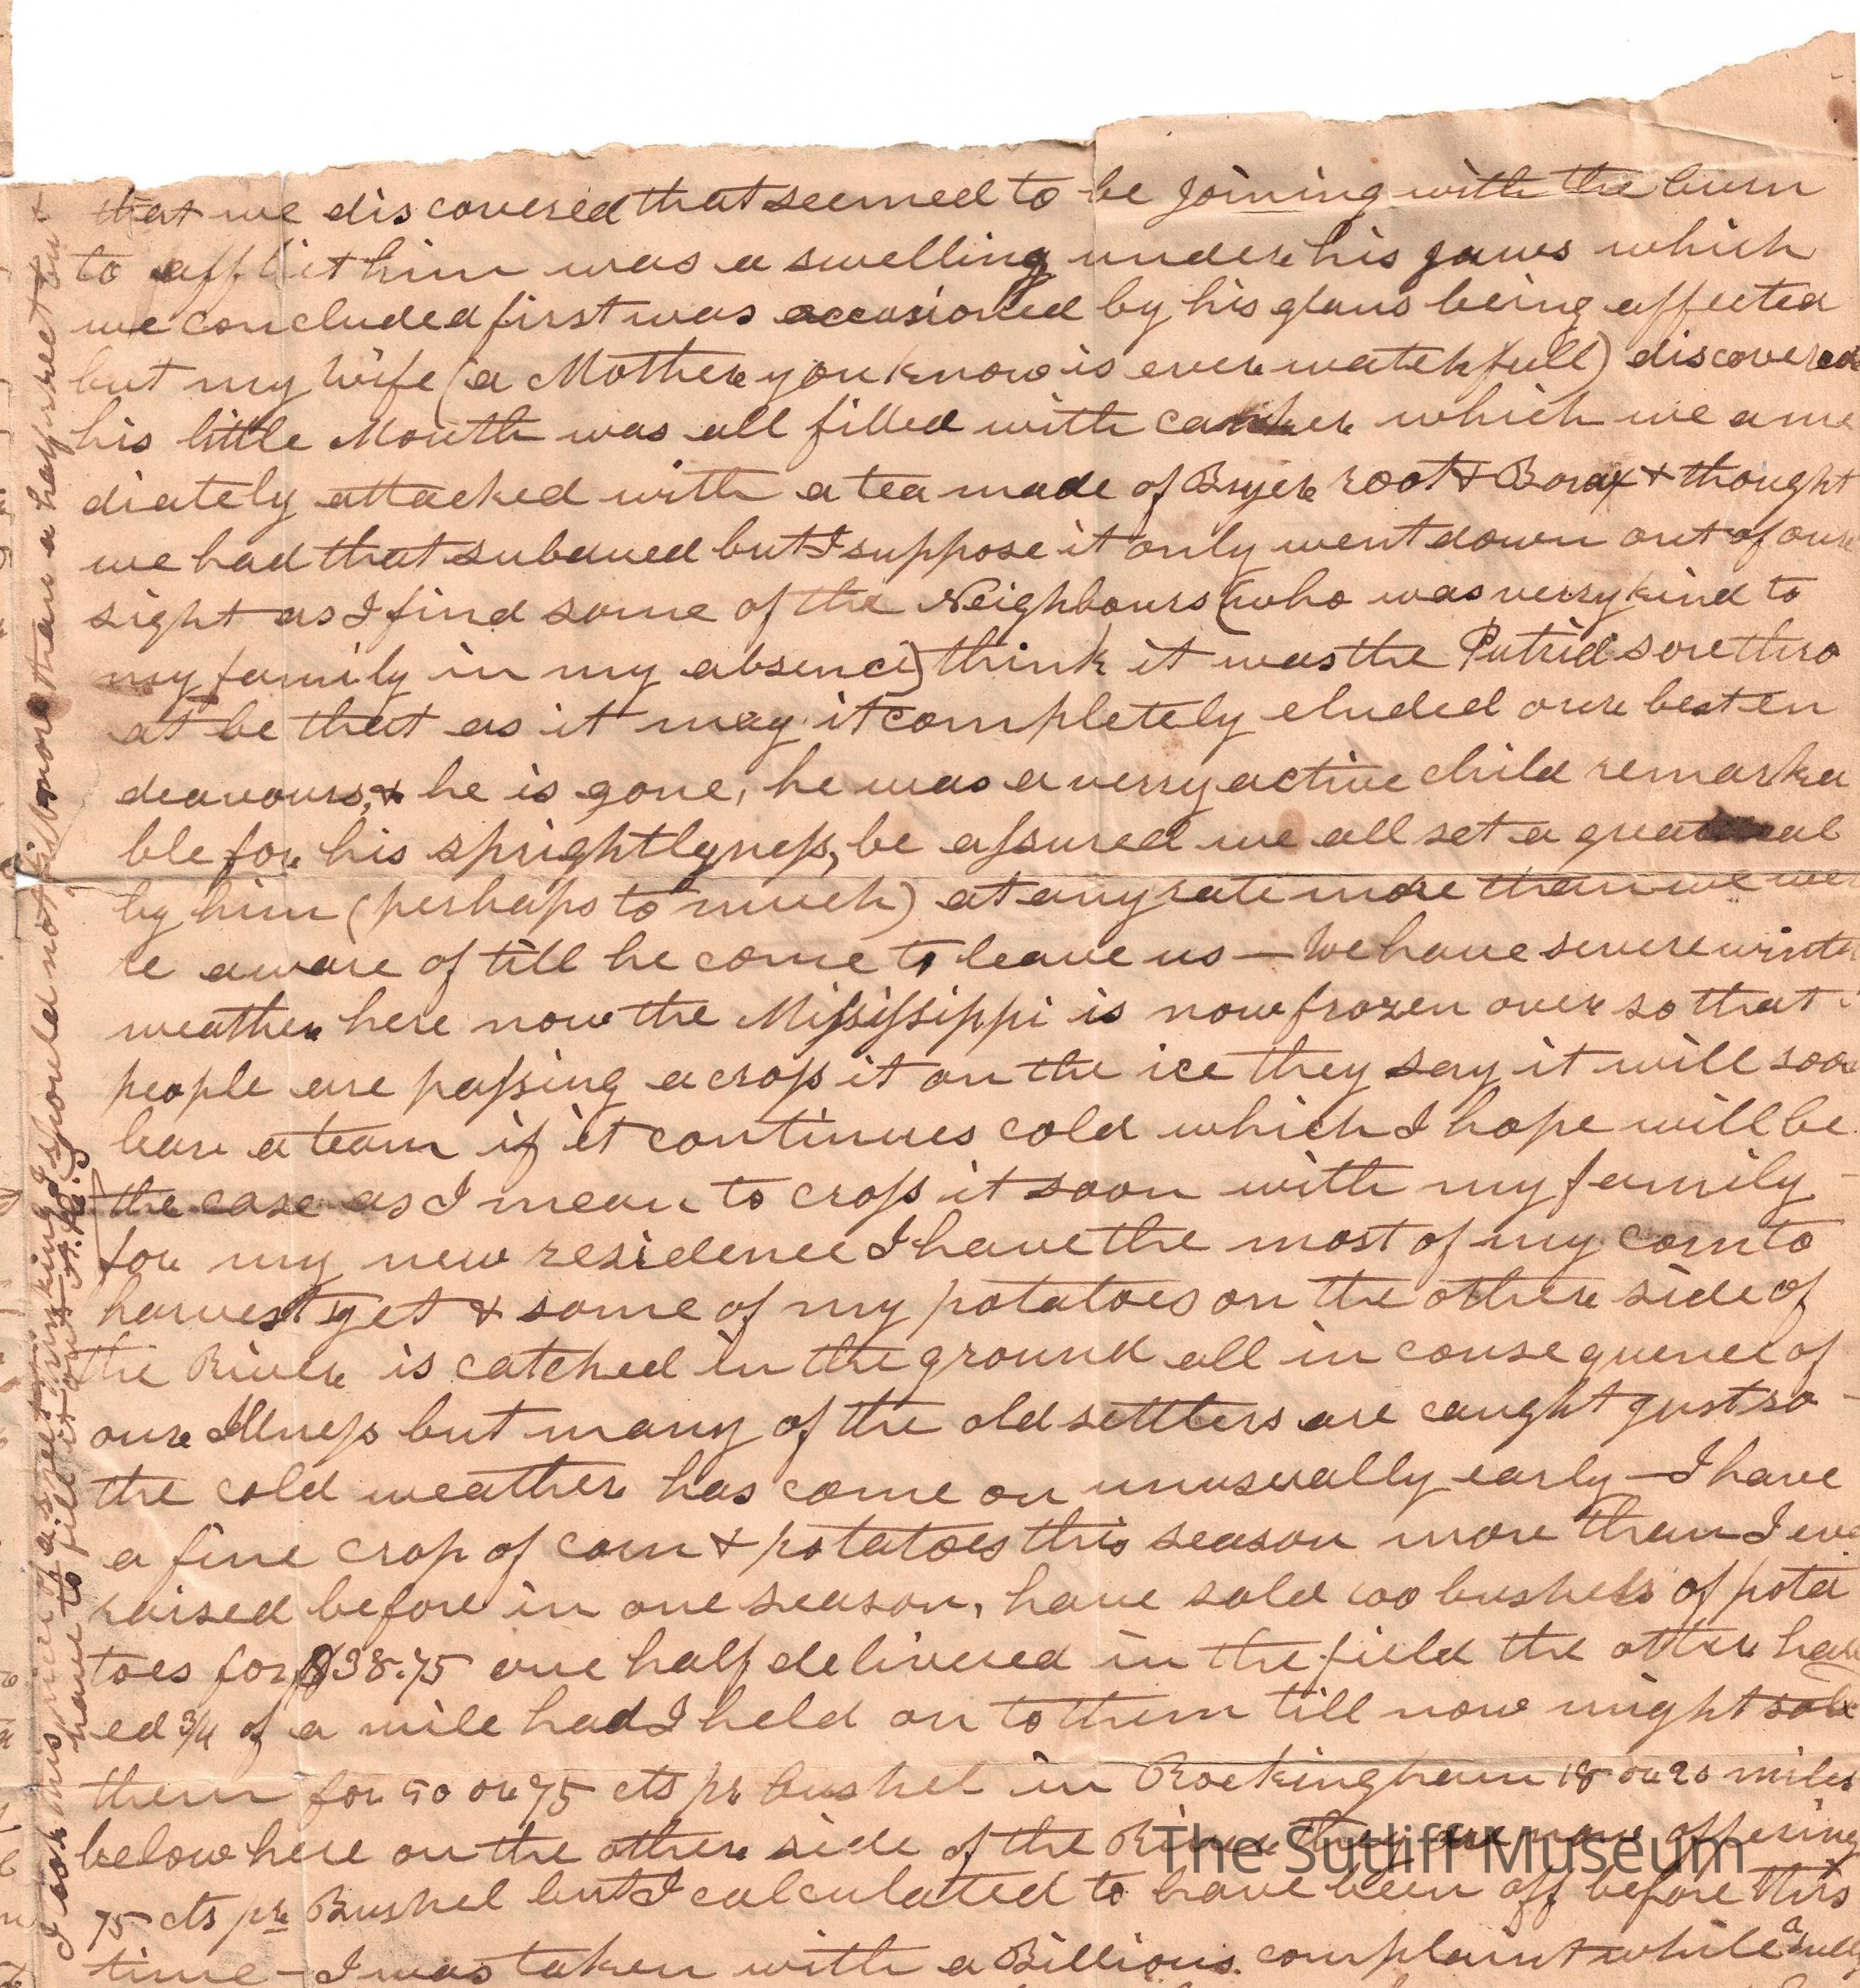 that we discovered that seemed to be joining with the burn
to afflict him was a swelling under his jaws which
we concluded first was occasioned by his glans being affected
but my Wife (a Mother you know is ever watchfull) discovered
his little Mouth was all filled with canker which we ame
diately attacked with a tea made of Bryer root & Borax & thought
we had that subdued but I suppose it only went down out of our
sight as I find some of the Neighbours (who was verry kind to
my family in my absence) think it was the Putrid sore thro
at be that as it may it completely eluded our best en
deavours, & he is gone, he was a verry active child remarka
ble for his sprightlyness, be assured we all set a great deal
by him (perhaps to much) at any rate more than we we
re aware of till he come to leave us — We have severe winter
weather here now the Mississippi is now frozen over so that
people are passing across it on the ice they say it will soon
bear a team if it continues cold which I hope will be
the case as I mean to cross it soon with my family
for my new residence I have the most of my corn to
harvest yet & some of my potatoes on the other side of
the River is catched in the ground all in consequence of
our Illness but many of the old settlers are caught just so
the cold weather has come on unusually early — I have
a fine crop of corn & potatoes this season more than I ever
raised before in one season, have sold 100 bushels of pota
toes for $38.75 one half delivered in the field the other haul
ed 3/4 of a mile had I held on to them till now might sold
them for 50 or 75 cts pr bushel in Rockingham 18 or 20 miles
below here on the other side of the River they are now offering
75 cts pr Bushel but I calculated to have been off before this
time — I was taken with a Billious complaint while a
I took this piece of a sheet thinking I should not fill more than a half sheet but
have to fill it out
The Sutliff Museum